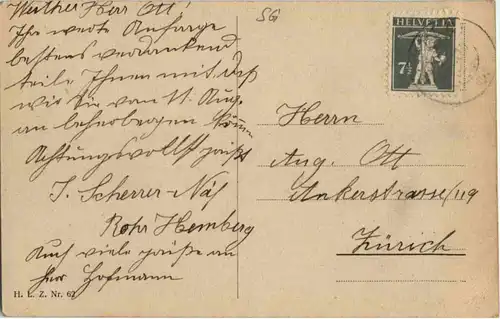 Werther Herr Ott!
Ihr werte Anfrage
bestens verdankend
teile Ihnen mit, daß
wir Sie vom 11. Aug.
an beherbergen können
Achtungsvollst grüßt
J. Scherrer-Näf
Rohr Hemberg
Auch viele grüße an
Herr Hofmann
H. L. Z. Nr. 62
SG
HELVETIA
7½
Herrn
Aug. Ott
Ankerstrasse/119
Zürich